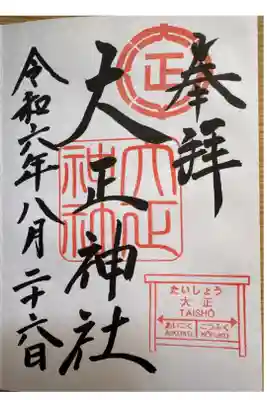 奉拝
正
大正神社
令和六年八月二十六日
たいしょう
大正
TAISHŌ
あいこく こうふく
AIKOKU KŌFUKU